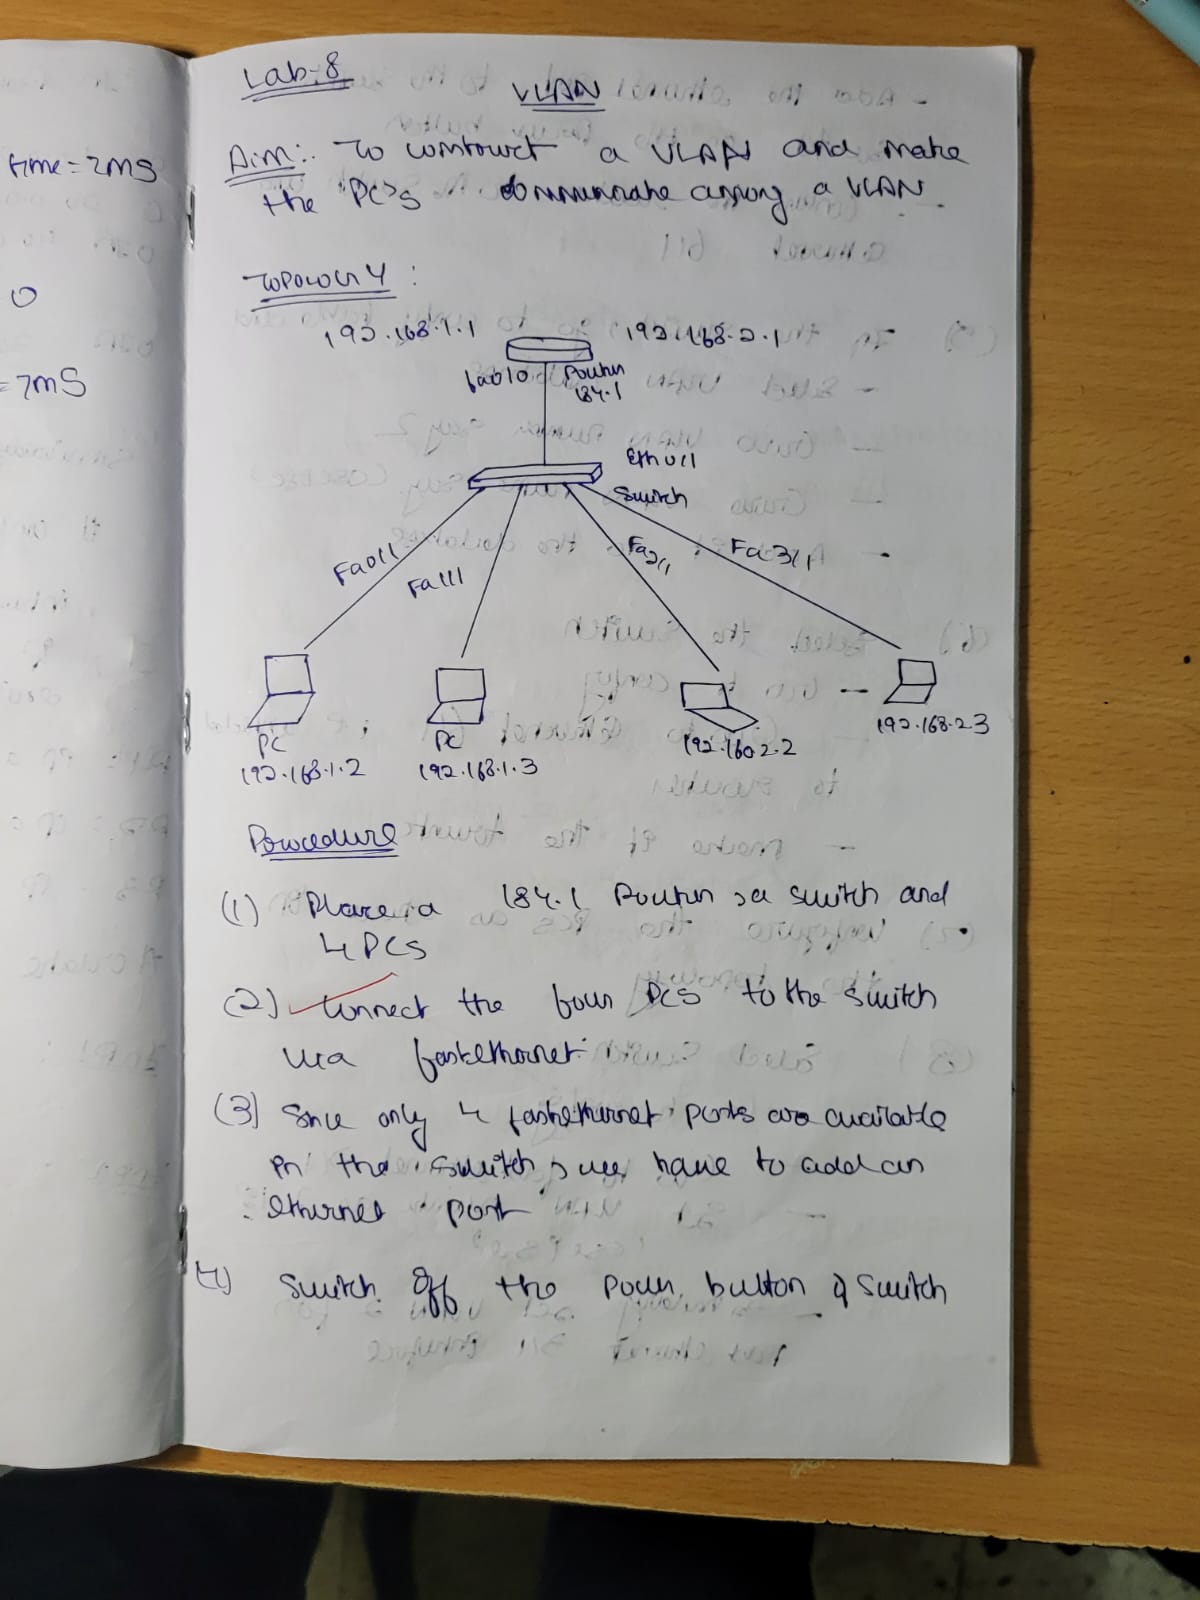 time = 2ms
0
= 7ms
Lab-8
VLAN
Aim:. To construct a VLAN and make
the PC's communicate among a VLAN
TOPOLOGY :
192.168.1.1 192.168.2.1
fa0/0 Router
1841
Eth 0/1
Switch
Fa0/1 Fa1/1 Fa2/1 Fa 3/1
PC PC
192.168.1.2 192.168.1.3 192.160.2.2 192.168.2.3
Procedure
(1) Place a 184.1 Router, a switch and
4 PCs
(2) Connect the four PCs to the switch
via fastethernet
(3) Since only 4 fastethernet ports are available
in the switch, we have to add an
ethernet port
4) Switch off the power button of switch